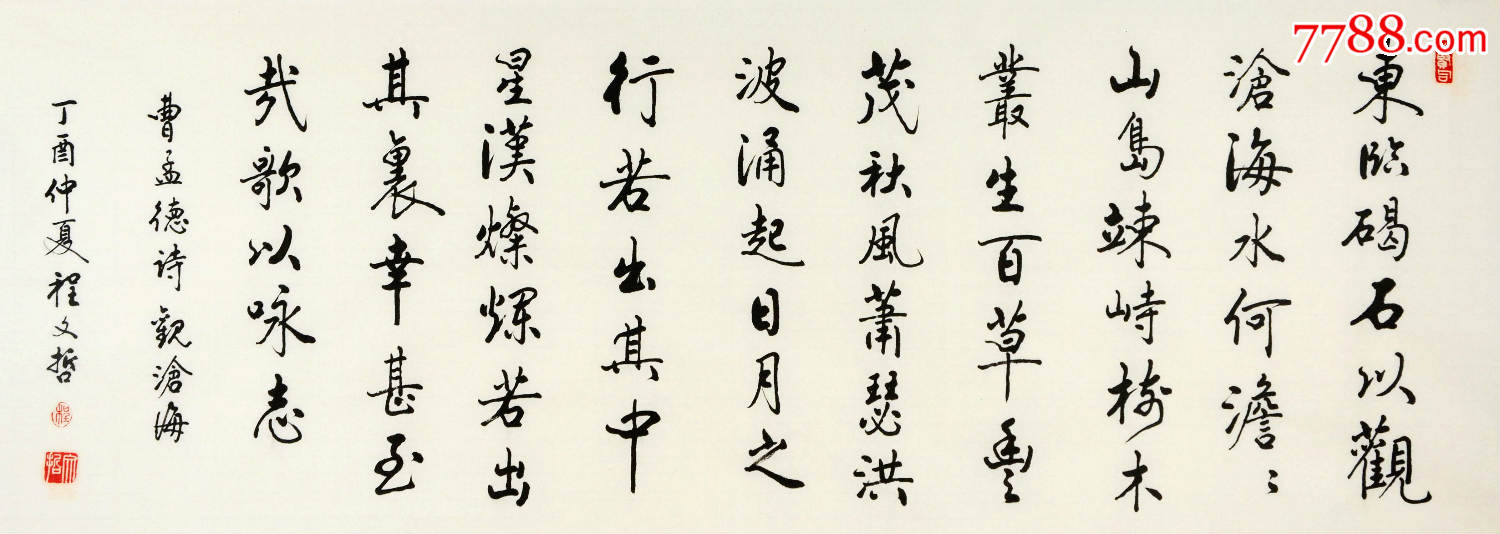 7788.com
東臨碣石以觀
滄海水何澹〻
山島竦峙樹木
叢生百草豐
茂秋風蕭瑟洪
波涌起日月之
行若出其中
星漢燦爛若出
其裏幸甚至
哉歌以咏志
曹孟德诗觀滄海
丁酉仲夏程文哲